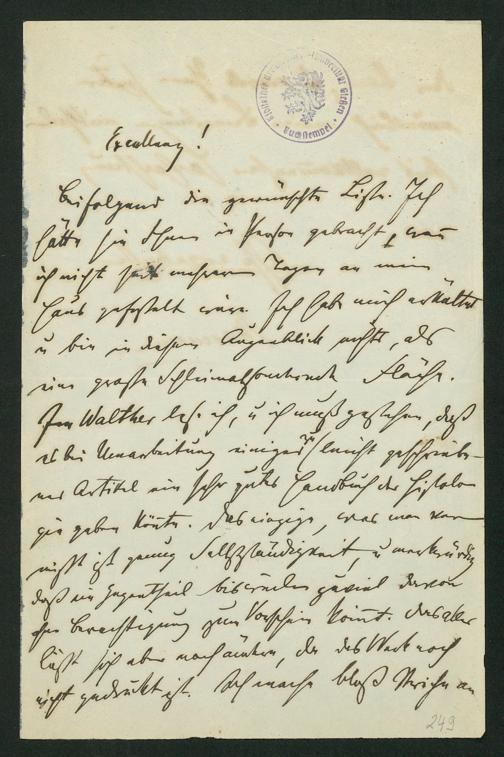 Excellenz!
Beifolgend die gewünschte Liste. Ich
hätte sie Ihnen in Person gebracht, wenn
ich nicht seit mehreren Tagen an mein
Haus gefesselt wäre. Ich habe mich erkältet
u bin in diesem Augenblick nichts, als
eine große Schleimabsondernde Fläche.
Den Walther lese ich, u ich muß gestehen, daß
es bei Umarbeitung einiger leicht geschriebe-
ner Artikel ein sehr gutes Handbuch der Histolo-
gie geben könnte. Das einzige, was man ver-
mißt ist genug Selbstständigkeit, u merkwürdig
daß im Gegentheil bisweilen zuviel davon
ohne Berechtigung zum Vorschein kömt. Das alles
läßt sich aber noch ändern, da das Werk noch
nicht gedruckt ist. Ich mache bloß Striche an
249